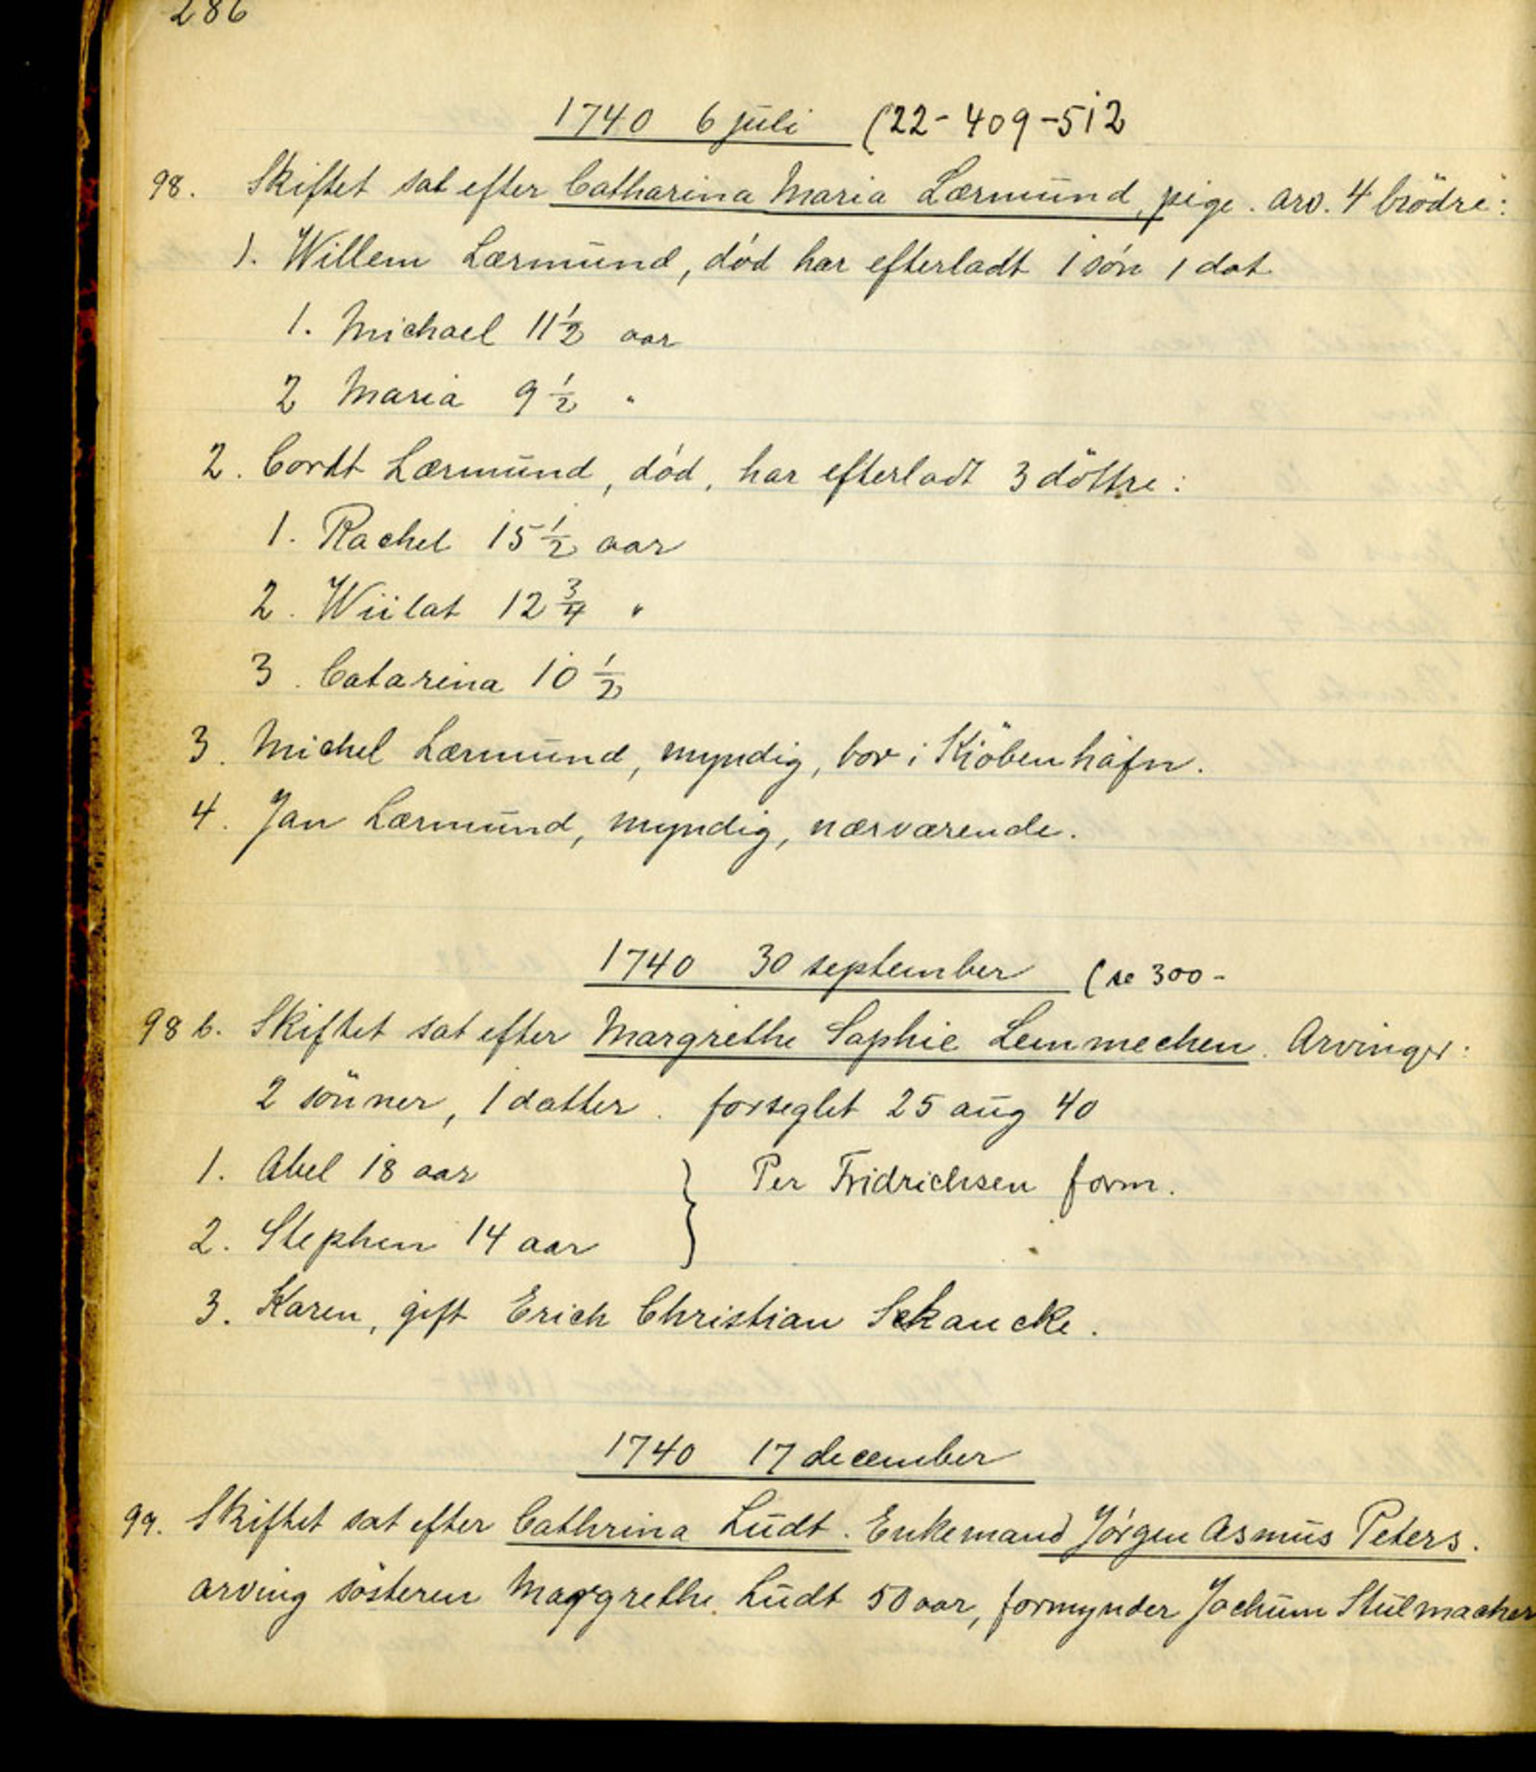 286
1740 6 juli (22-409-512
98. Skiftet sat efter Catharina Maria Lærmund, pige. arv. 4 brödre:
1. Willem Lærmund, död har efterladt 1 sön 1 dat
1. Michael 11½ aar
2 Maria 9½ "
2. Cordt Lærmund, död, har efterladt 3 döttre:
1. Rachel 15½ aar
2. Wiilat 12¾ "
3. Catarina 10½
3. Michel Lærmund, myndig, bor i Kiöbenhafn.
4. Jan Lærmund, myndig, nærværende.
1740 30 september (se 300-
98 b. Skiftet sat efter Margrethe Saphie Lemmechen. Arvinger:
2 sönner, 1 datter. forseglet 25 aug 40
1. Abel 18 aar } Per Fridrichsen form.
2. Stephen 14 aar
3. Karen, gift Erich Christian Schancke.
1740 17 december
99. Skiftet sat efter Cathrina Ludt. Enkemand Jörgen Asmus Peters.
arving sösteren Margrethe Ludt 50 aar, formynder Jochum Stulmacher